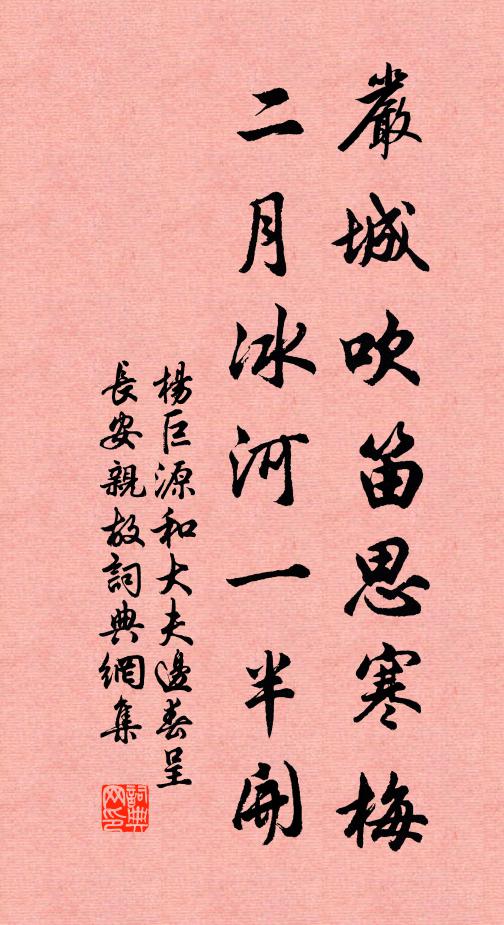 嚴城吹笛思寒梅
二月冰河一半開
楊巨源和大夫邊春呈
長安親故詞典網集
詞典網印